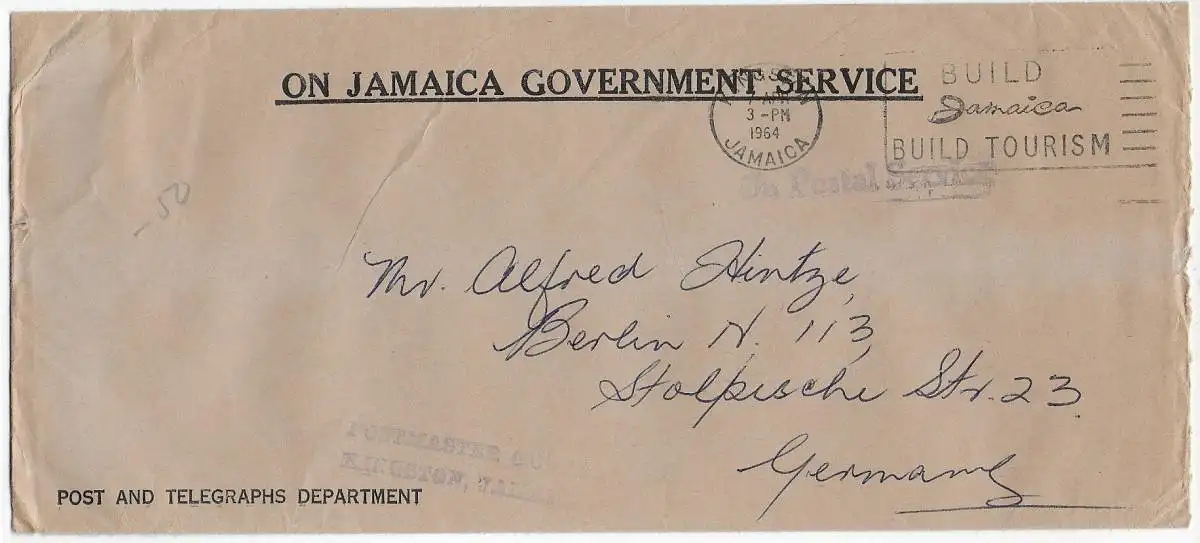 ON JAMAICA GOVERNMENT SERVICE
KINGSTON
7 APR
3 -PM
1964
JAMAICA
BUILD
Jamaica
BUILD TOURISM
On Postal Service
-50
Mr. Alfred Hintze,
Berlin N. 113,
Stolpische Str. 23
Germany
POSTMASTER
KINGSTON, JAMAICA
POST AND TELEGRAPHS DEPARTMENT